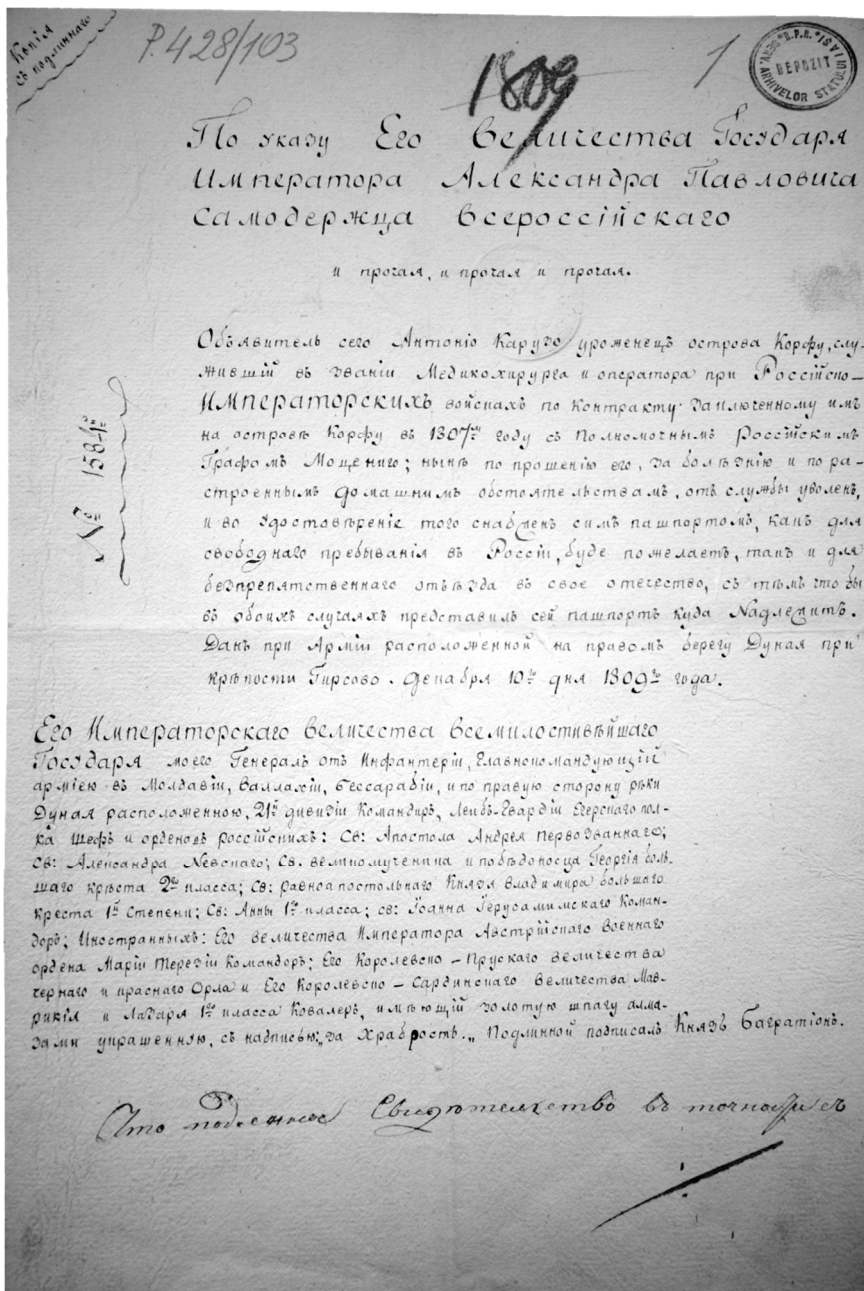 Копія
съ подлиннаго
P. 428/103
1809
1
DEPOZIT
ARHIVELOR STATULUI IASI
По указу Его Величества Государя
Императора Александра Павловича
Самодержца Всероссійскаго
и прочая, и прочая и прочая.
№ 1584й
Объявитель сего Антоніо Карузо уроженецъ острова Корфу, слу-
жившій въ званіи Медикохирурга и оператора при Россійско-
ИМПЕРАТОРСКИХЪ войскахъ по контракту заключенному имъ
на островѣ Корфу въ 1807мъ году съ полномочнымъ Россійскимъ
Графомъ Моцениго; нынѣ по прошенію его, за болѣзнію и по ра-
строеннымъ домашнимъ обстоятельствамъ, отъ службы уволенъ,
и во удостовѣреніе того снабденъ симъ пашпортомъ, какъ для
свободнаго пребыванія въ Россіи, буде пожелаетъ, такъ и для
безпрепятственнаго отъѣзда въ свое отечество, съ тѣмъ что бы
въ обоихъ случаяхъ представилъ сей пашпортъ куда надлежитъ.
Данъ при Арміи расположенной на правомъ берегу Дуная при
крѣпости Гирсово. Декабря 10го дня 1809го года.
Его Императорскаго Величества Всемилостивѣйшаго
Государя моего Генералъ отъ Инфантеріи, Главнокомандующій
арміею въ Молдавіи, Валлахіи, Бессарабіи, и по правую сторону рѣки
Дуная расположенною, 21й дивизіи Командиръ, Лейбъ-Гвардіи Егерскаго пол-
ка Шефъ и орденовъ россійскихъ: Св: Апостола Андрея Первозваннаго;
Св: Александра Невскаго; Св. великомученика и побѣдоносца Георгія боль-
шаго крѣста 2го класса; Св: равноапостольнаго Князя Владимира большаго
креста 1й Степени; Св: Анны 1го класса; св: Іоанна Іерусалимскаго Коман-
доръ; Иностранныхъ: Его величества Императора Австрійскаго военнаго
ордена Маріи Терезіи Командоръ; Его Королевско-Прускаго величества
чернаго и краснаго Орла и Его Королевско-Сардинскаго величества Мав-
рикія и Лазаря 1го класса Ковалеръ, имѣющій золотую шпагу алма-
зами украшенную, съ надписью: „за Храбрость„ Подлинной подписалъ Князь Багратіонъ.
Что Свидѣтельство въ